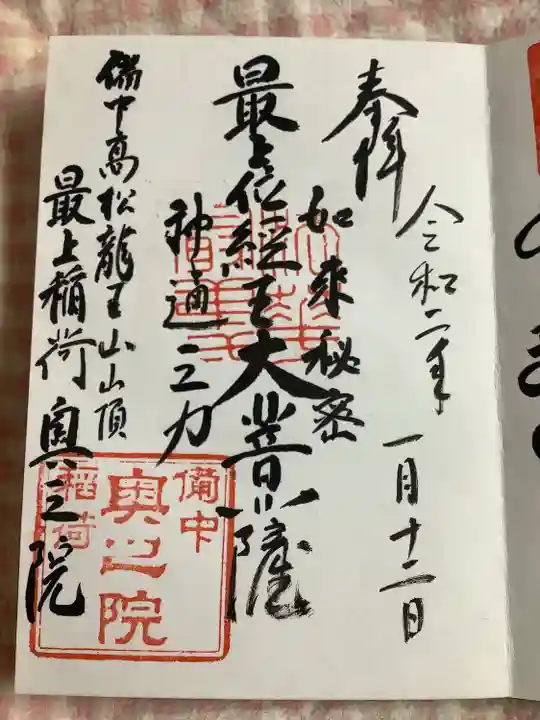 奉拝
令和二年 一月十二日
如来秘密
最上位経王大菩薩
神通之力
備中高松龍王山山頂
最上稲荷 奥之院
備中
奥之院
稲荷